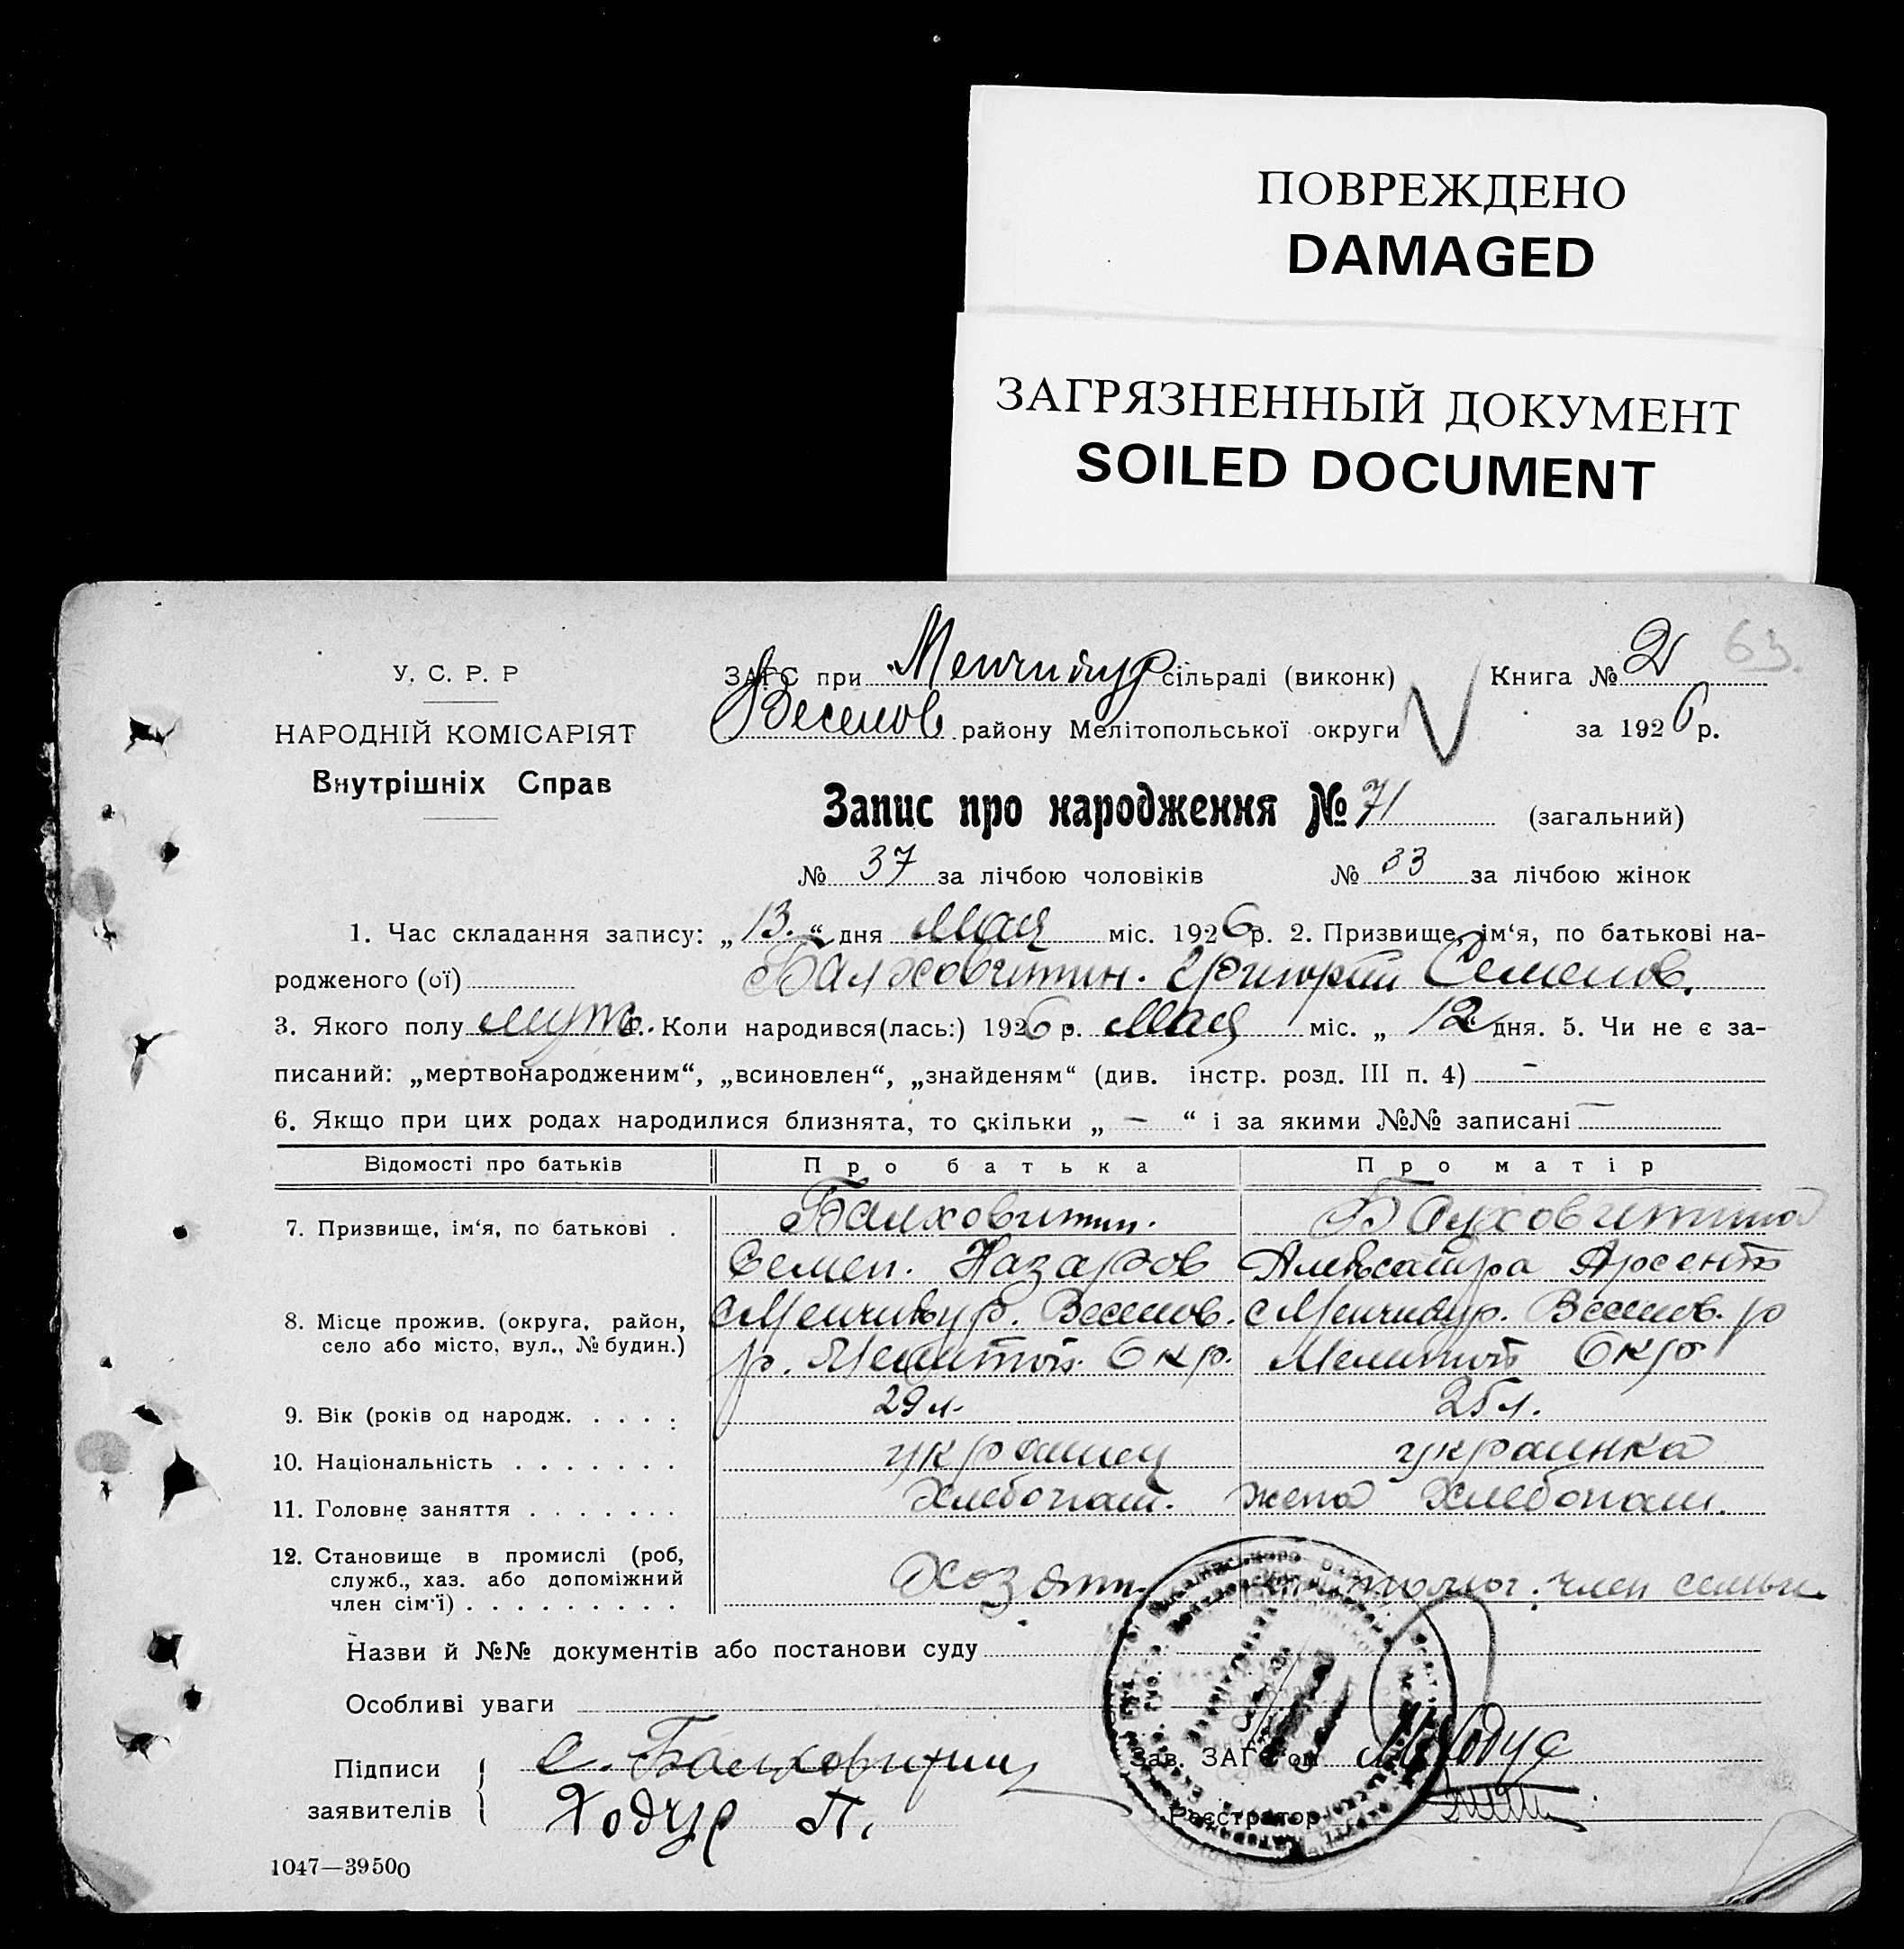 ПОВРЕЖДЕНО
DAMAGED
ЗАГРЯЗНЕННЫЙ ДОКУМЕНТ
SOILED DOCUMENT
63.
У. С. Р. Р
НАРОДНІЙ КОМІСАРІЯТ
Внутрішніх Справ
ЗАГС при Менчикур сільраді (виконк) Книга № 2
Веселов району Мелітопольської округи за 1926 р.
Запис про народження № 71 (загальний)
№ 37 за лічбою чоловіків № 33 за лічбою жінок
1. Час складання запису: „13.“ дня Мая міс. 1926 р. 2. Призвище, ім‘я, по батькові на-
родженого (ої) Балховитин. Григорий Семенов.
3. Якого полу муж. 4. Коли народився(лась:) 1926 р. Мая міс. „ 12 “ дня. 5. Чи не є за-
писаний: „мертвонародженим“, „всиновлен“, „знайденям“ (див. інстр. розд. III п. 4) –
6. Якщо при цих родах народилися близнята, то скільки „ – “ і за якими №№ записані –
Відомості про батьків Про батька Про матір
7. Призвище, ім‘я, по батькові . Балховитин. Балховитина
Семен. Назаров Александра Арсенть
8. Місце прожив. (округа, район, село або місто, вул., № будин.) с Менчикур. Веселов. с Менчикур. Веселов. р
р. Мелитоп. Окр. Мелитоп Окр
9. Вік (років од народж. . . . . 29 л. 25 л.
10. Національність . . . . . . . украинец украинка
11. Головне заняття . . . . . . . Хлебопаш. жена Хлебопаш.
12. Становище в промислі (роб, служб., хаз. або допоміжний член сім‘ї) . . . . . . . . . Хозяин. член семьи
Назви й №№ документів або постанови суду
Особливі уваги
Підписи заявителів С. Балховитин Зав. ЗАГС‘ом Ходус
Ходус П. Реєстратор
1047—39500